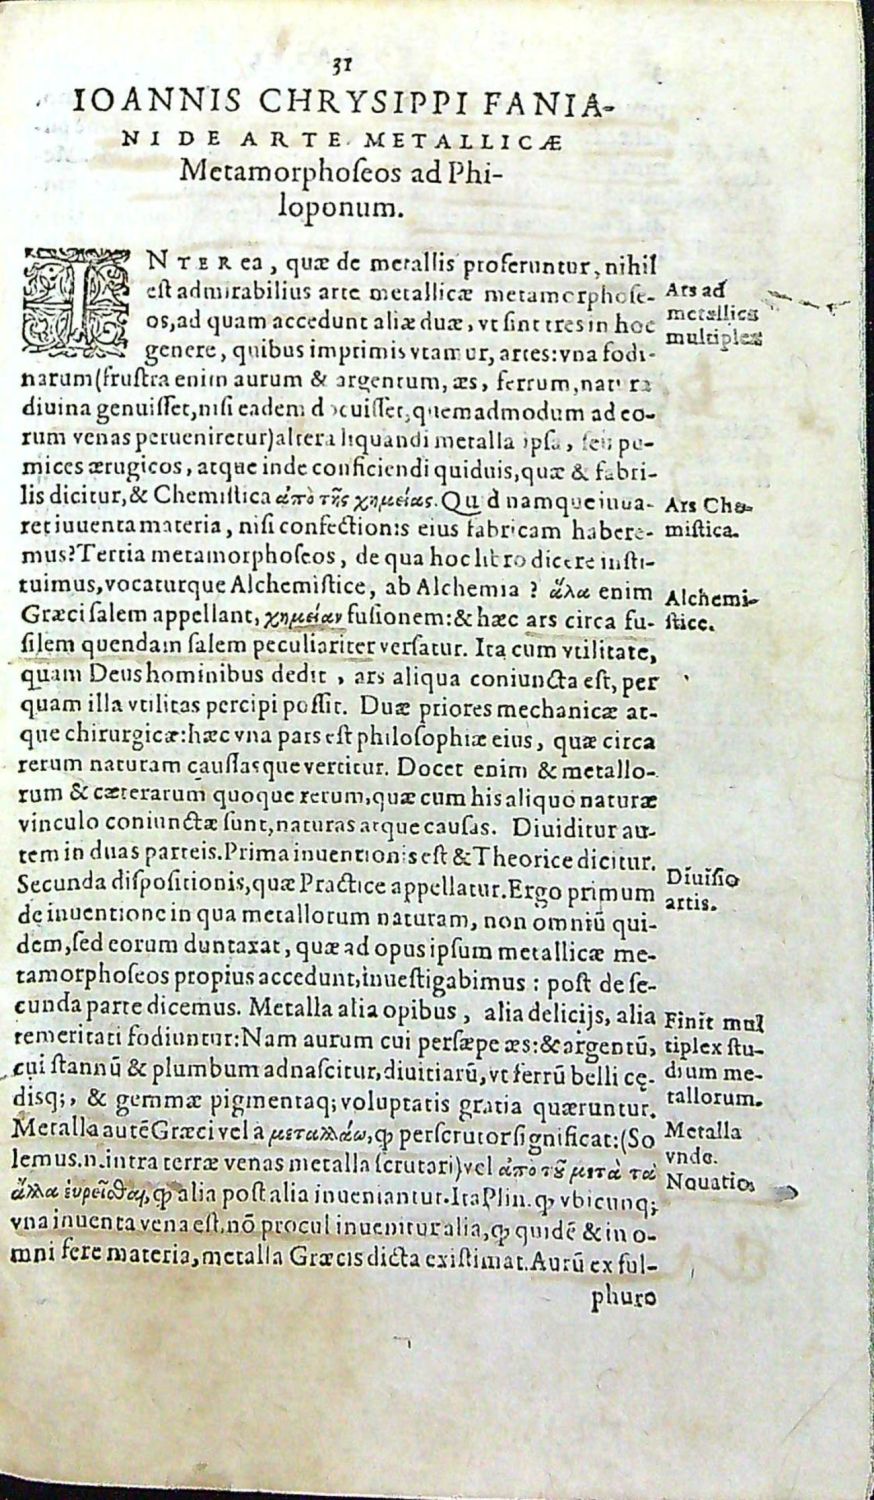 31
IOANNIS CHRYSIPPI FANIA-
NI DE ARTE METALLICÆ
Metamorphoſeos ad Phi-
loponum.
INTER ea, quæ de metallis proferuntur, nihil
eſt admirabilius arte metallicæ metamorphoſe-
os, ad quam accedunt aliæ duæ, vt ſint tres in hoc
genere, quibus imprimis vtamur, artes: vna fodi-
narum (fruſtra enim aurum & argentum, æs, ferrum, natura
diuina genuiſſet, niſi eadem docuiſſet, quemadmodum ad eo-
rum venas perueniretur) altera liquandi metalla ipſa, ſeu pu-
mices ærugicos, atque inde conficiendi quiduis, quæ & fabri-
lis dicitur, & Chemiſtica ἀπὸ τῆς χημείας. Quid namque iuua-
ret iuuenta materia, niſi confectionis eius fabricam habere-
mus? Tertia metamorphoſeos, de qua hoc libro dicere inſti-
tuimus, vocaturque Alchemiſtice, ab Alchemia ? ἅλα enim
Græci ſalem appellant, χημείαν fuſionem: & hæc ars circa fu-
ſilem quendam ſalem peculiariter verſatur. Ita cum vtilitate,
quam Deus hominibus dedit , ars aliqua coniuncta eſt, per
quam illa vtilitas percipi poſſit. Duæ priores mechanicæ at-
que chirurgicæ: hæc vna pars eſt philoſophiæ eius, quæ circa
rerum naturam cauſſasque vertitur. Docet enim & metallo-
rum & cæterarum quoque rerum, quæ cum his aliquo naturæ
vinculo coniunctæ ſunt, naturas atque cauſas. Diuiditur au-
tem in duas parteis. Prima inuentionis eſt & Theorice dicitur.
Secunda diſpoſitionis, quæ Practice appellatur. Ergo primum
de inuentione in qua metallorum naturam, non omniū qui-
dem, ſed eorum duntaxat, quæ ad opus ipſum metallicæ me-
tamorphoſeos propius accedunt, inueſtigabimus : poſt de ſe-
cunda parte dicemus. Metalla alia opibus , alia delicijs, alia
temeritati fodiuntur: Nam aurum cui perſæpe æs: & argentū,
cui ſtannū & plumbum adnaſcitur, diuitiarū, vt ferrū belli cę-
disq;, & gemmæ pigmentaq; voluptatis gratia quæruntur.
Metalla autē Græci vel à μεταλλάω, ꝙ perſcrutor ſignificat: (So
lemus .n. intra terræ venas metalla ſcrutari) vel ἀπὸ τȣ͂ μετὰ τὰ
ἄλλα ἑυρεῖσθαι, ꝙ alia poſt alia inueniantur. Ita Plin. ꝙ vbicunq;
vna inuenta vena eſt, nō procul inuenitur alia, ꝙ quidē & in o-
mni fere materia, metalla Græcis dicta exiſtimat. Aurū ex ful-
phuro
Ars ad
metallica
multiplex
Ars Che-
miſtica.
Alchemi-
ſtice.
Diuiſio
artis.
Finit mul
tiplex ſtu-
dium me-
tallorum.
Metalla
vnde.
Nouatio